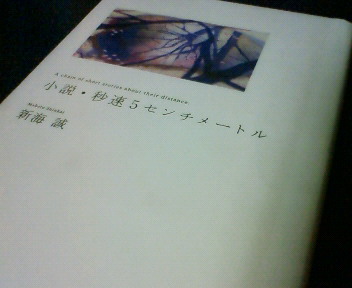 A chain of short stories about their distance
小説・秒速5センチメートル
Makoto Shinkai
新海 誠